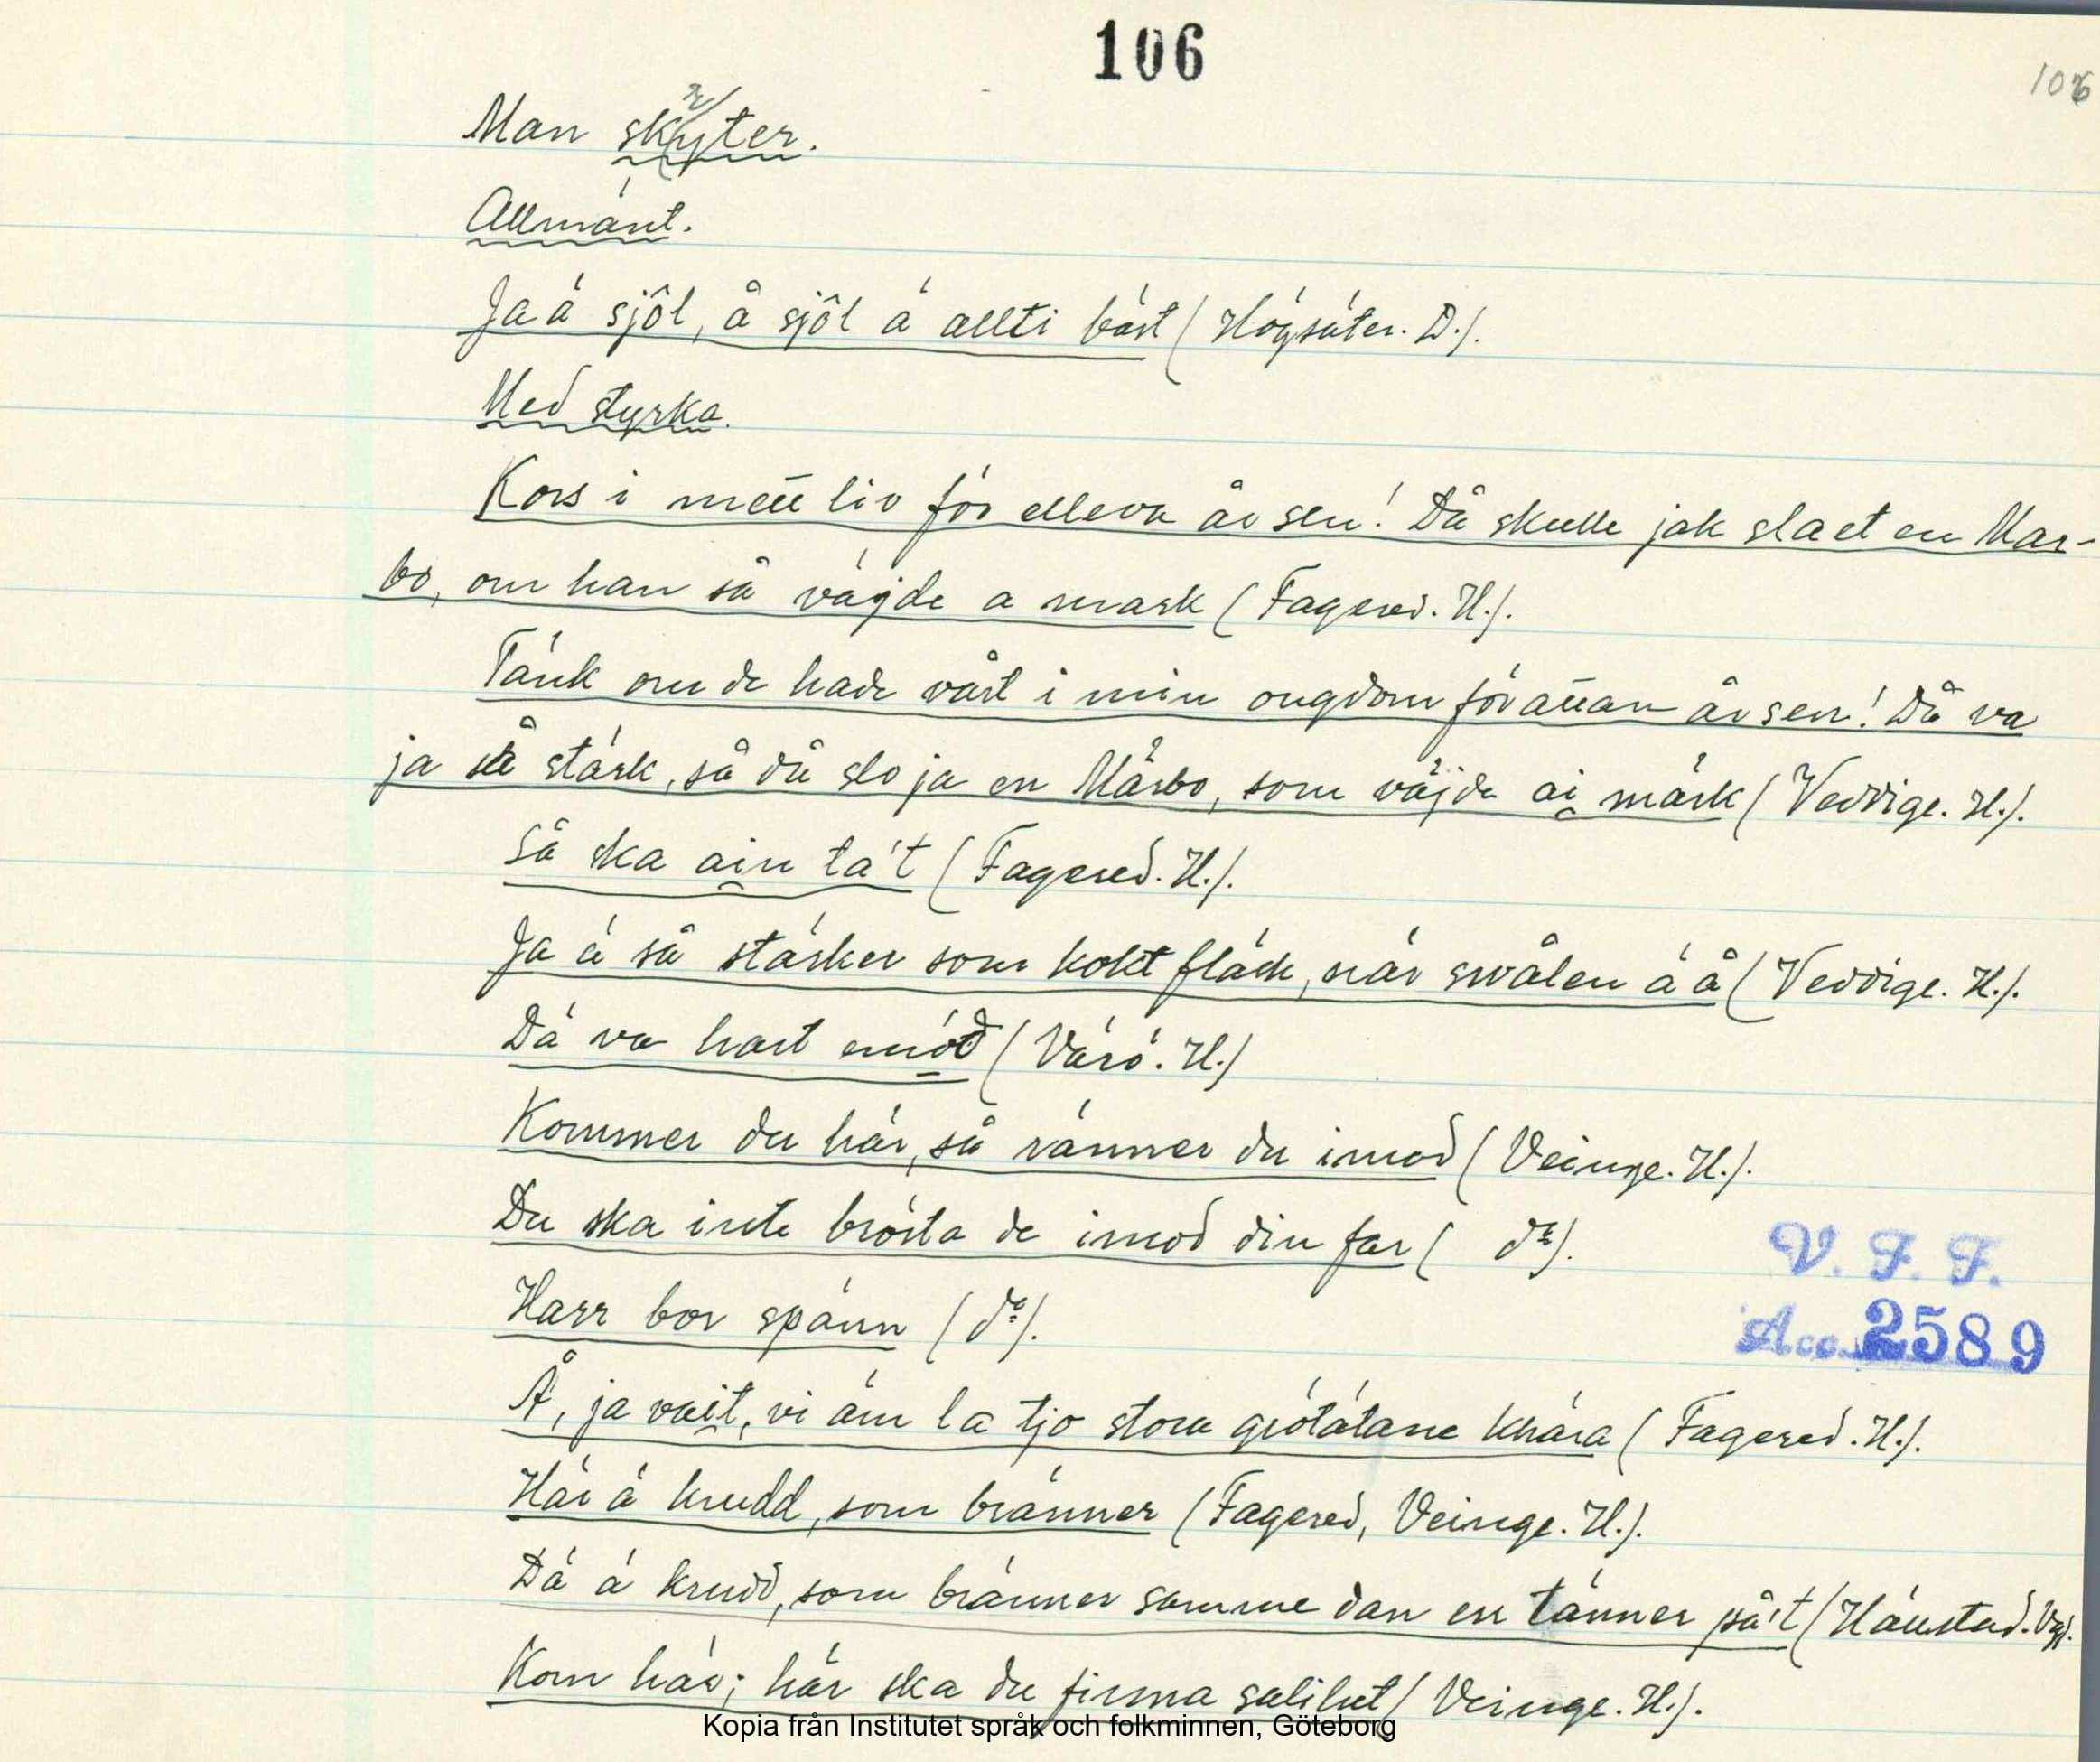 106
106
Man skryter.
Allmänt.
Ja ä sjôl, å sjôl ä allti bäst (Högsäter. D.).
Med styrka.
Kors i mett liv för elleva år sen! Då skulle jak slaet en Mar-
bo, om han så vägde a mark (Fagered. H.).
Tänk om de hade vart i min ongdom för åttan år sen! Då va
ja så stärk, så då slo ja en Mårbo, som väjde ai mark (Veddige. H.).
Så ska ain ta't (Fagered. H.).
Ja ä så stärker som kokt fläck, när svålen ä å (Veddige. H.).
Dä va hart emöd (Värö. H.)
Kommer du här, så ränner du imod (Veinge. H.).
Du ska inte brösta de imod din far ( do).
Harr bor spänn (do).
Å, ja vait, vi äm la tjo stora grötätane khära (Fagered. H.).
Här ä krudd, som bränner (Fagered, Veinge. H.).
Dä ä krudd, som bränner samme dan en tänner på't (Häustad. Vg).
Kom här; här ska du finna salihet (Veinge. H.).
V. F. F.
Acc. 2589
Kopia från Institutet språk och folkminnen, Göteborg